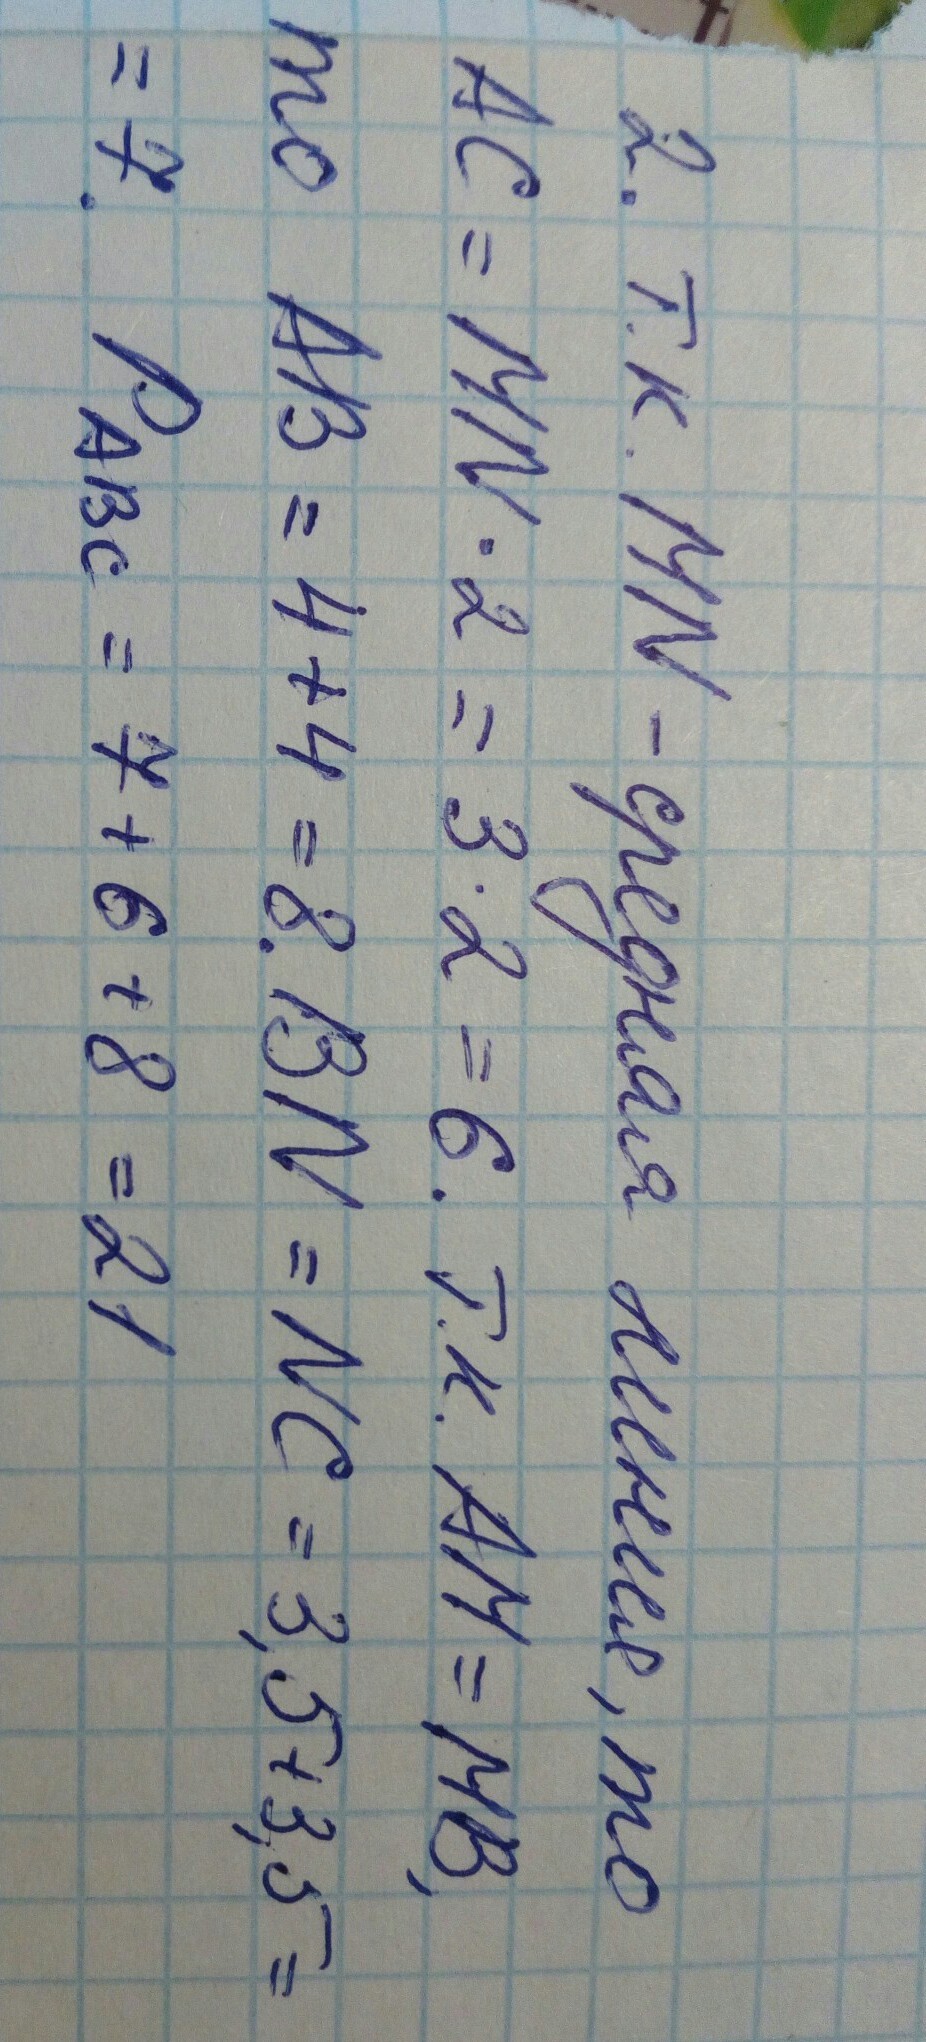 2. т.к. MN - средняя линия, то
AC = MN · 2 = 3 · 2 = 6. Т.к. AM = MB,
то AB = 4 + 4 = 8. BN = NC = 3,5 + 3,5 =
= 7. PABC = 7 + 6 + 8 = 21